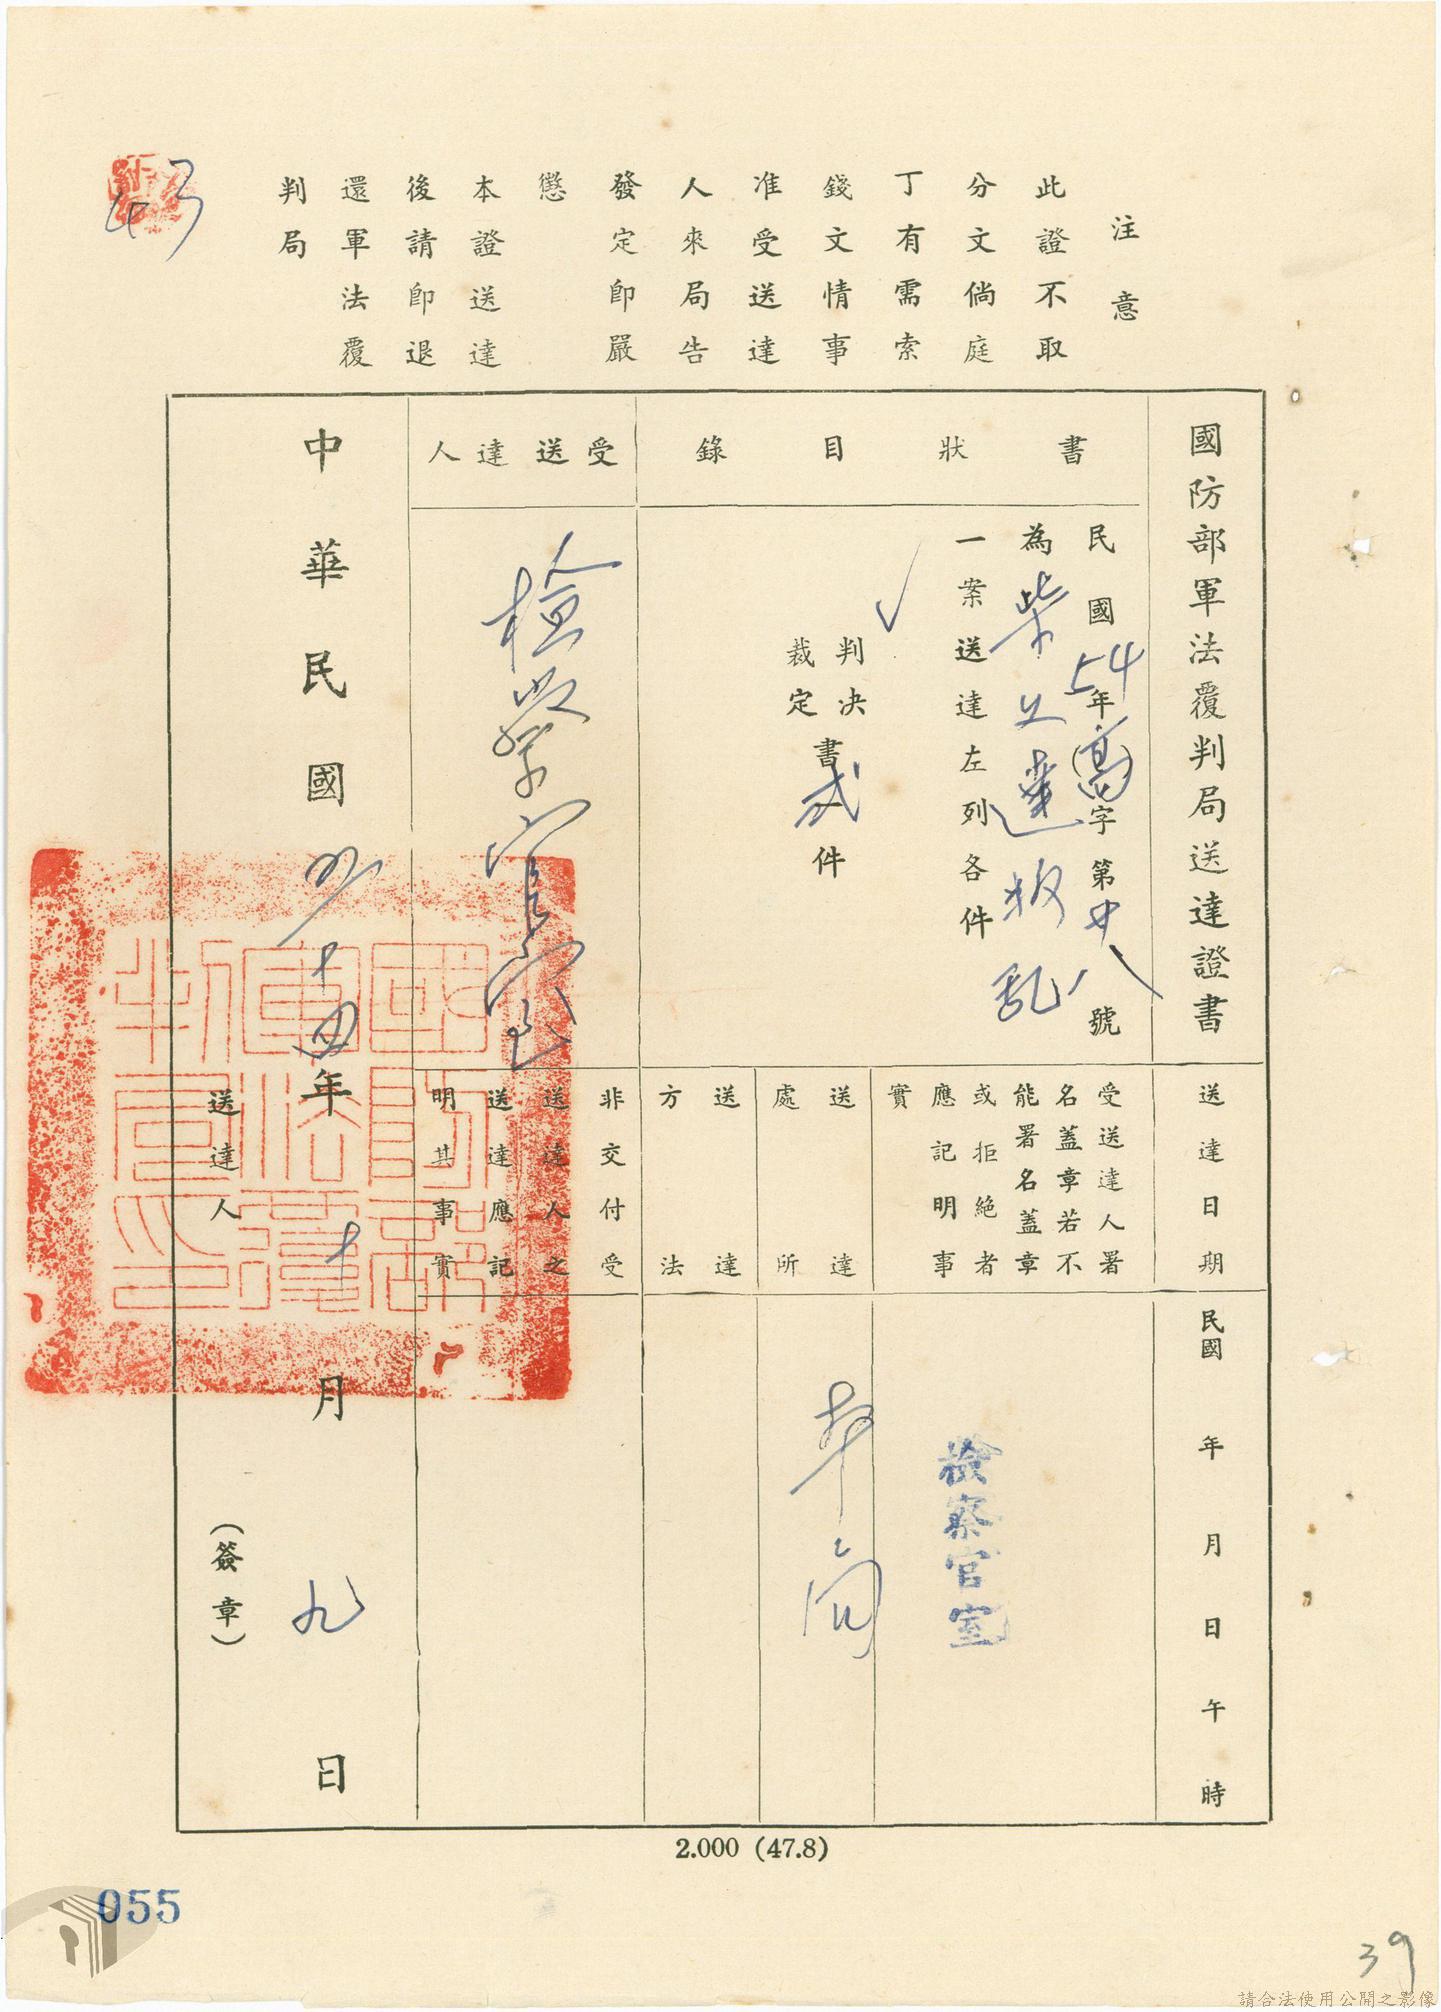 注意
此證不取
分文倘庭
丁有需索
錢文情事
准受送達
人來局告
發定即嚴
懲
本證送達
後請即退
還軍法覆
判局
43
國防部軍法覆判局送達證書
書狀目錄
民國54年(高)字第廿八號
為柴之達叛乱
一案送達左列各件
✓
判決
裁定
書弍件
受送達人
檢察官室
送達日期
民國 年 月 日 午 時
受送達人署
名蓋章若不
能署名蓋章
或拒絕者
應記明事
實
檢察官室
送達
處所
本局
送達
方法
非交付受
送達人之
送達應記
明其事實
中華民國四十四年十月九日
送達人
(簽章)
國防部軍法覆判局印
2.000 (47.8)
055
39
請合法使用公開之影像